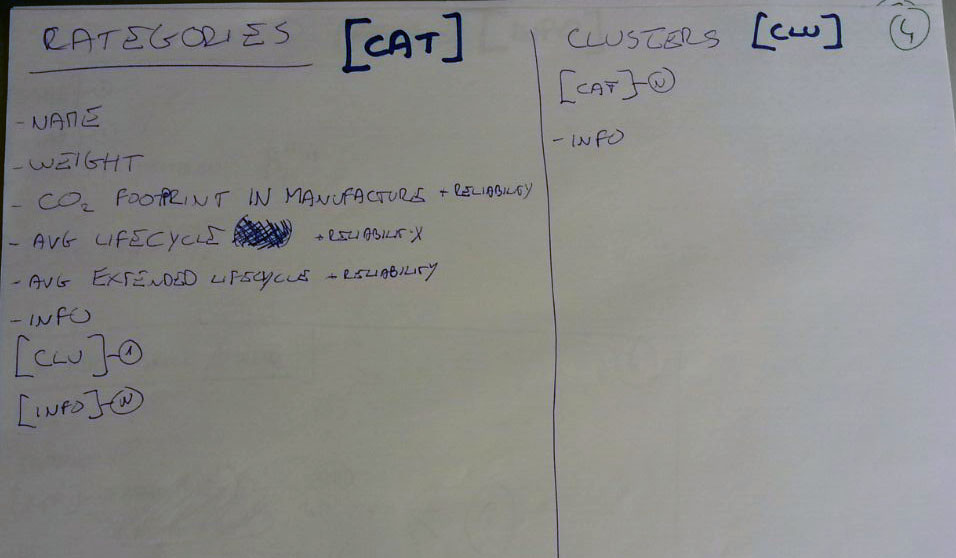 CATEGORIES [CAT]
- NAME
- WEIGHT
- CO2 FOOTPRINT IN MANUFACTURE + RELIABILITY
- AVG LIFECYCLE + RELIABILITY
- AVG EXTENDED LIFECYCLE + RELIABILITY
- INFO
[CLU]-1
[INFO]-N
CLUSTERS [CLU]
4
[CAT]-N
- INFO